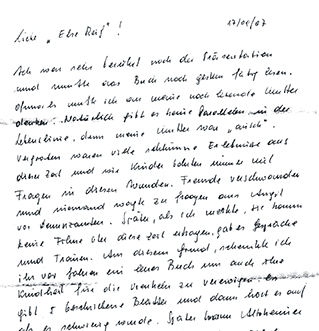 Liebe "Else Reif"! 17/01/07
Ich war sehr berührt nach der Präsentation
und mußte das Buch noch gestern fertig lesen.
oftmals mußte ich an meine noch lebende Mutter
denken. Natürlich gibt es keine Parallelen in der
Lebenslinie, denn meine Mutter war "arisch".
vergraben waren viele schlimme Erlebnisse aus
dieser Zeit und wir Kinder bohrten immer mit
Fragen in diesen Wunden. Freunde verschwanden
und niemand wagte zu fragen aus Angst
vor Denunzianten. Später, als ich merkte, sie kann
keine Filme über diese Zeit ertragen, gab es Gespräche
und Tränen. Aus diesem Grund, schenkte ich
ihr vor Jahren ein leeres Buch um auch ihre
Kindheit für die Enkeln zu verewigen. Es
gibt 5 beschriebene Blätter und dann hört es auf
als es schwierig wurde. Später kam Alzheimer